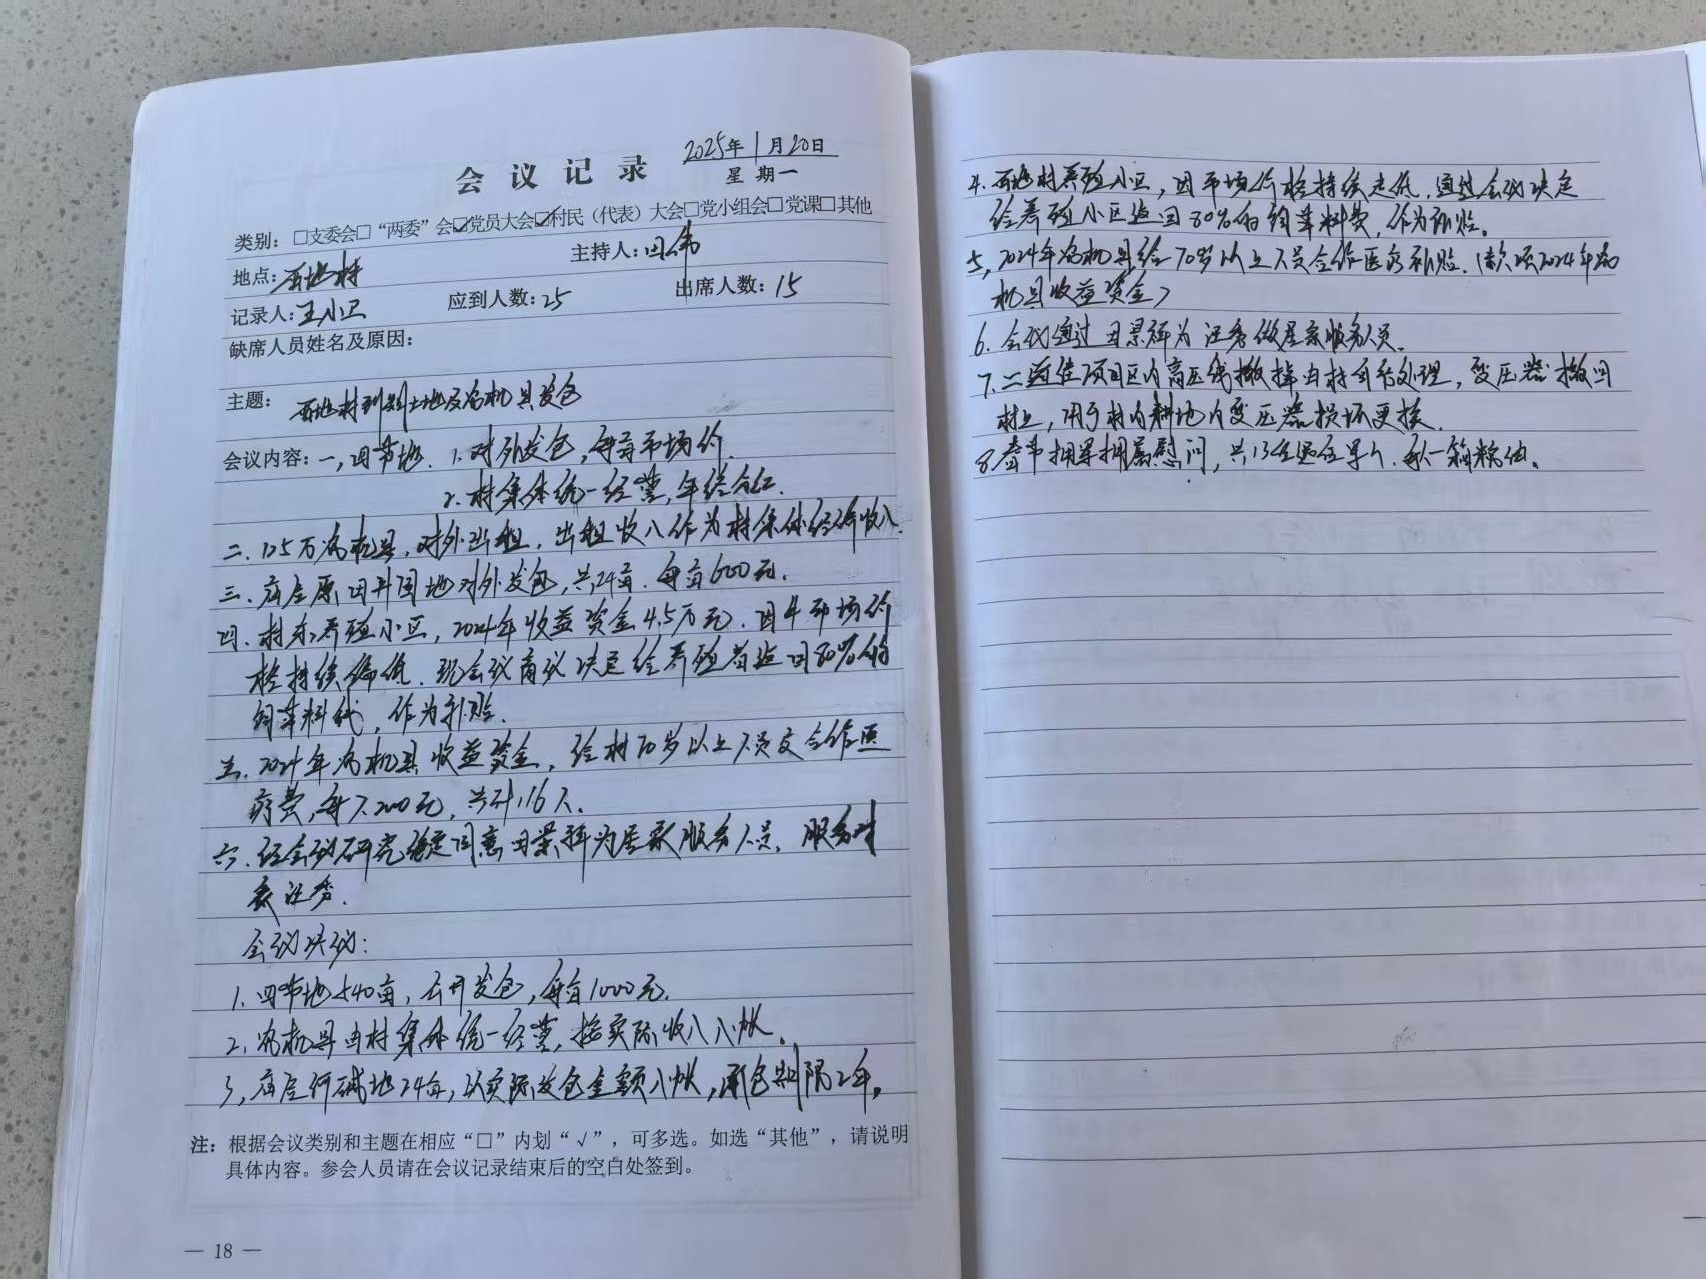 会议记录
2025年1月20日
星期一
类别：□支委会□“两委”会☑党员大会☑村民（代表）大会□党小组会□党课□其他
地点：西地村 主持人：田伟
记录人：王小卫 应到人数：25 出席人数：15
缺席人员姓名及原因：
主题：西地村 土地及农机具发包
会议内容：一，四节地．1.对外发包，每亩市场价．
2.村集体统一经营，年终分红．
二．125万农机具，对外出租，出租收入作为村集体经济收入．
三．庙后原 地对外发包，共24亩．每亩600元．
四．村东养殖小区，2024年收益资金4.5万元．因牛市场价
格持续偏低．现会议商议决定给养殖者返回80%的
饲草料代，作为补贴．
五．2024年农机具收益资金，给村70岁以上人员交合作医
疗费，每人200元，共计116人．
六．经会议研究确定同意田景祥为居家服务人员．服务对
象汪秀．
会议决议：
1.四节地540亩，公开发包，每亩1000元．
2.农机具由村集体统一经营，按实际收入入帐。
3，庙后 碱地24亩，以实际发包金额入帐，承包期限2年。
注：根据会议类别和主题在相应“□”内划“√”，可多选。如选“其他”，请说明
具体内容。参会人员请在会议记录结束后的空白处签到。
— 18 —
4．西地村养殖小区，因市场价格持续走低．通过会议决定
给养殖小区返回80%的饲草料费，作为补贴。
5，2024年农机具给70岁以上人员合作医疗补贴．（款项2024年农
机具收益资金）
6．会议通过田景祥为汪秀做居家服务人员．
7．二道住项目区内高压线撤掉由村自行处理，变压器撤回
村上，用于村内耕地内变压器损坏更换．
8．春节拥军拥属慰问，共13名退伍军人．一箱粮油。